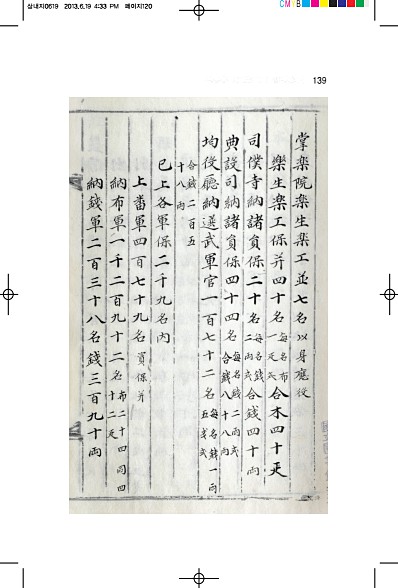 삼내지0619 2013.6.19 4:33 PM 페이지120
CMYB
139
掌樂院樂生樂工並七名以身應役
樂生樂工保并四十名每名布一疋式合木四十疋
司僕寺納諸負保二十名每名錢二兩式合錢四十兩
典設司納諸負保四十四名每名錢二兩式合錢八十八兩
均役廳納選武軍官一百七十二名每名錢一兩五戔式
合錢二百五十八兩
已上各軍保二千九名內
上番軍四百七十九名資保并
納布軍一千二百九十二名布二十四同四十二疋
納錢軍二百三十八名錢三百九十兩